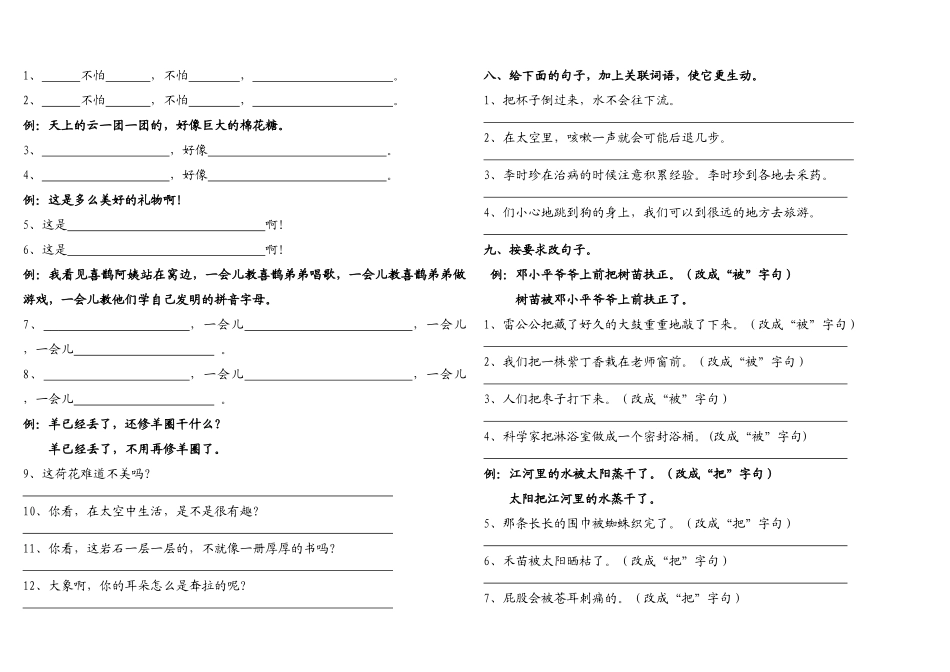 1、______不怕_______，不怕________，______________________。
2、______不怕_______，不怕________，______________________。
例：天上的云一团一团的，好像巨大的棉花糖。
3、____________________，好像____________________________。
4、____________________，好像____________________________。
例：这是多么美好的礼物啊！
5、这是_______________________________啊！
6、这是_______________________________啊！
例：我看见喜鹊阿姨站在窝边，一会儿教喜鹊弟弟唱歌，一会儿教喜鹊弟弟做
游戏，一会儿教他们学自己发明的拼音字母。
7、_______________________，一会儿__________________________，一会儿
，一会儿______________________ 。
8、_______________________，一会儿__________________________，一会儿
，一会儿______________________ 。
例：羊已经丢了，还修羊圈干什么？
羊已经丢了，不用再修羊圈了。
9、这荷花难道不美吗？
10、你看，在太空中生活，是不是很有趣？
11、你看，这岩石一层一层的，不就像一册厚厚的书吗？
12、大象啊，你的耳朵怎么是耷拉的呢？
八、给下面的句子，加上关联词语，使它更生动。
1、把杯子倒过来，水不会往下流。
2、在太空里，咳嗽一声就会可能后退几步。
3、李时珍在治病的时候注意积累经验。李时珍到各地去采药。
4、们小心地跳到狗的身上，我们可以到很远的地方去旅游。
九、按要求改句子。
例：邓小平爷爷上前把树苗扶正。（改成“被”字句）
树苗被邓小平爷爷上前扶正了。
1、雷公公把藏了好久的大鼓重重地敲了下来。（改成“被”字句）
2、我们把一株紫丁香栽在老师窗前。（改成“被”字句）
3、人们把枣子打下来。（改成“被”字句）
4、科学家把淋浴室做成一个密封浴桶。(改成“被”字句)
例：江河里的水被太阳蒸干了。（改成“把”字句）
太阳把江河里的水蒸干了。
5、那条长长的围巾被蜘蛛织完了。（改成“把”字句）
6、禾苗被太阳晒枯了。（改成“把”字句）
7、屁股会被苍耳刺痛的。（改成“把”字句）